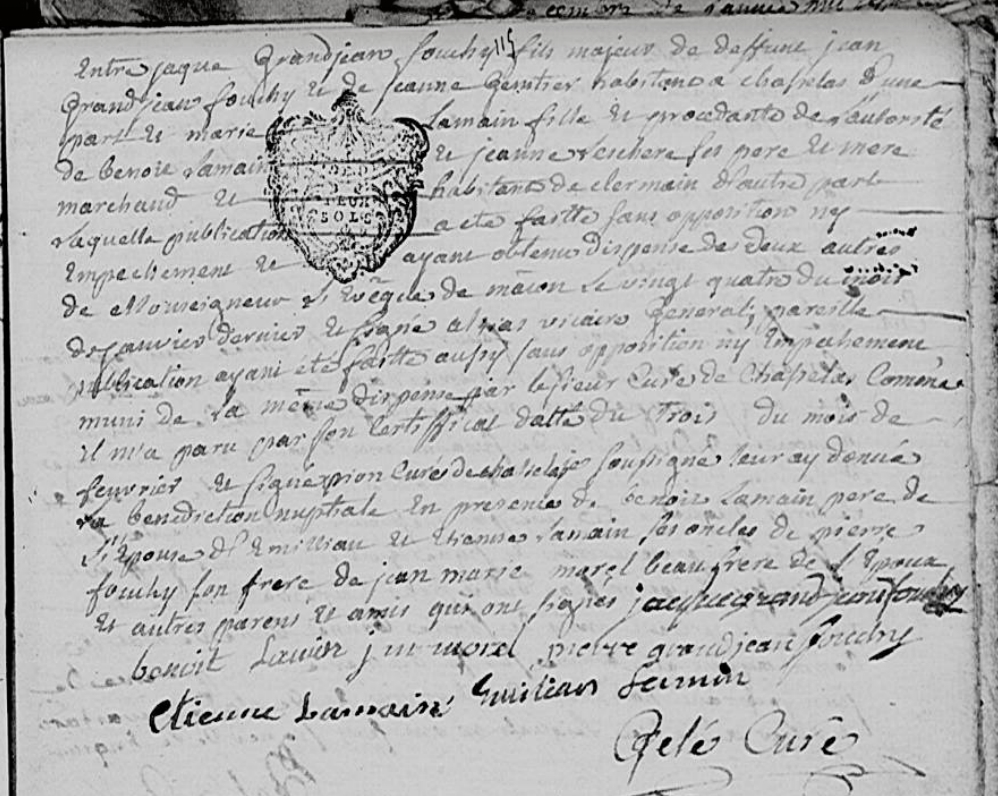 cembre de l'année mil
115
Entre jaque Grandjean fouchy fils majeur de deffunt jean
Grandjean fouchy et de jeanne habitant a chaselas d'une
part et marie Lamain fille et procedante de l'autorité
de benoit Lamain et jeanne Leschere ses pere et mere
marchand et habitant de clermain d'autre part
Laquelle publication a eté faitte sans opposition ny
Empechement et ayant obtenu dispense des deux autres
de Monseigneur L'Evêque de mâcon Le vingt quatre du mois
de janvier dernier et signé vicaire General, pareille
publication ayant été faitte aussy sans opposition ny Empechement
muni de La même dispense par le sieur Curé de Chaselas Comme
il m'a paru par son Certifficat datté du trois du mois de
fevvrier et signé Curé de chaselas soussigné leur ay donné
La benediction nuptiale En presence de benoit Lamain pere de
L'Epouse d'Emilliau et Etienne Lamain ses oncles de pierre
fouchy son frere de jean marie morel beau frere de L'Epoux
et autres parens et amis qui ont signés jacque grandjean fouchy
benoit Lamin j m morel pierre grandjean fouchy
Etienne Lamain Emilian Lamin
Curé
DED
DEUX
SOLS